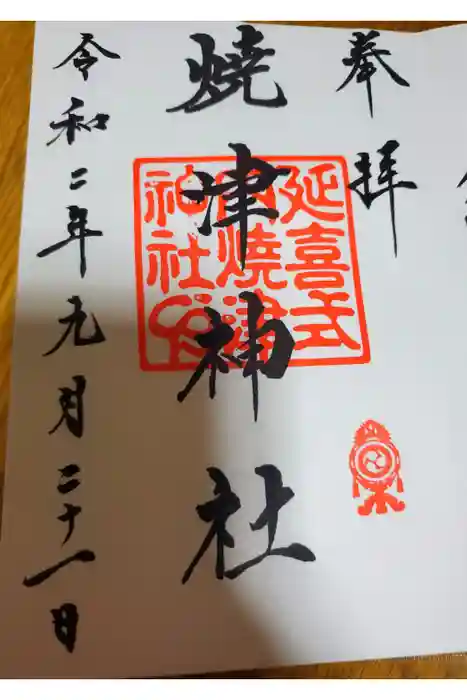 奉拝
焼津神社
延喜式
内焼津
神社印
令和二年九月二十一日